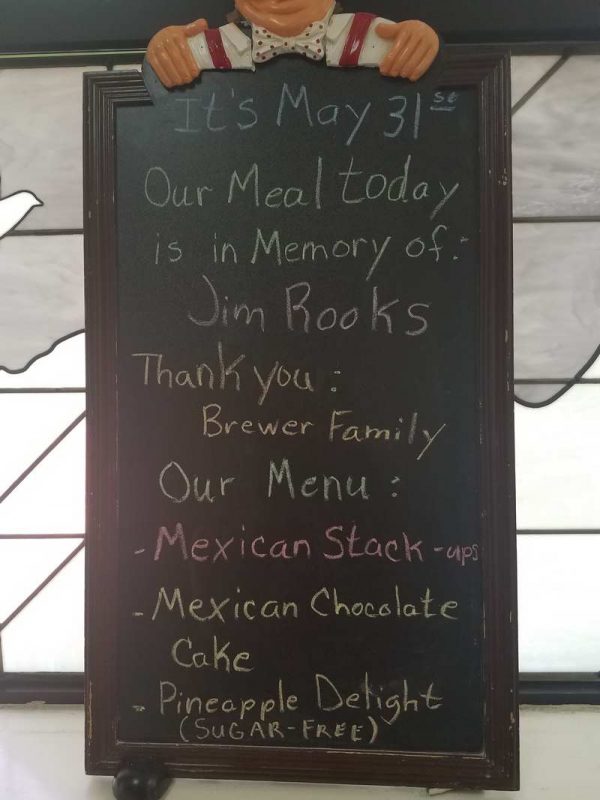 It's May 31st
Our Meal today
is in Memory of:
Jim Rooks
Thank you:
Brewer Family
Our Menu:
- Mexican Stack-ups
- Mexican Chocolate
Cake
- Pineapple Delight
(SUGAR-FREE)